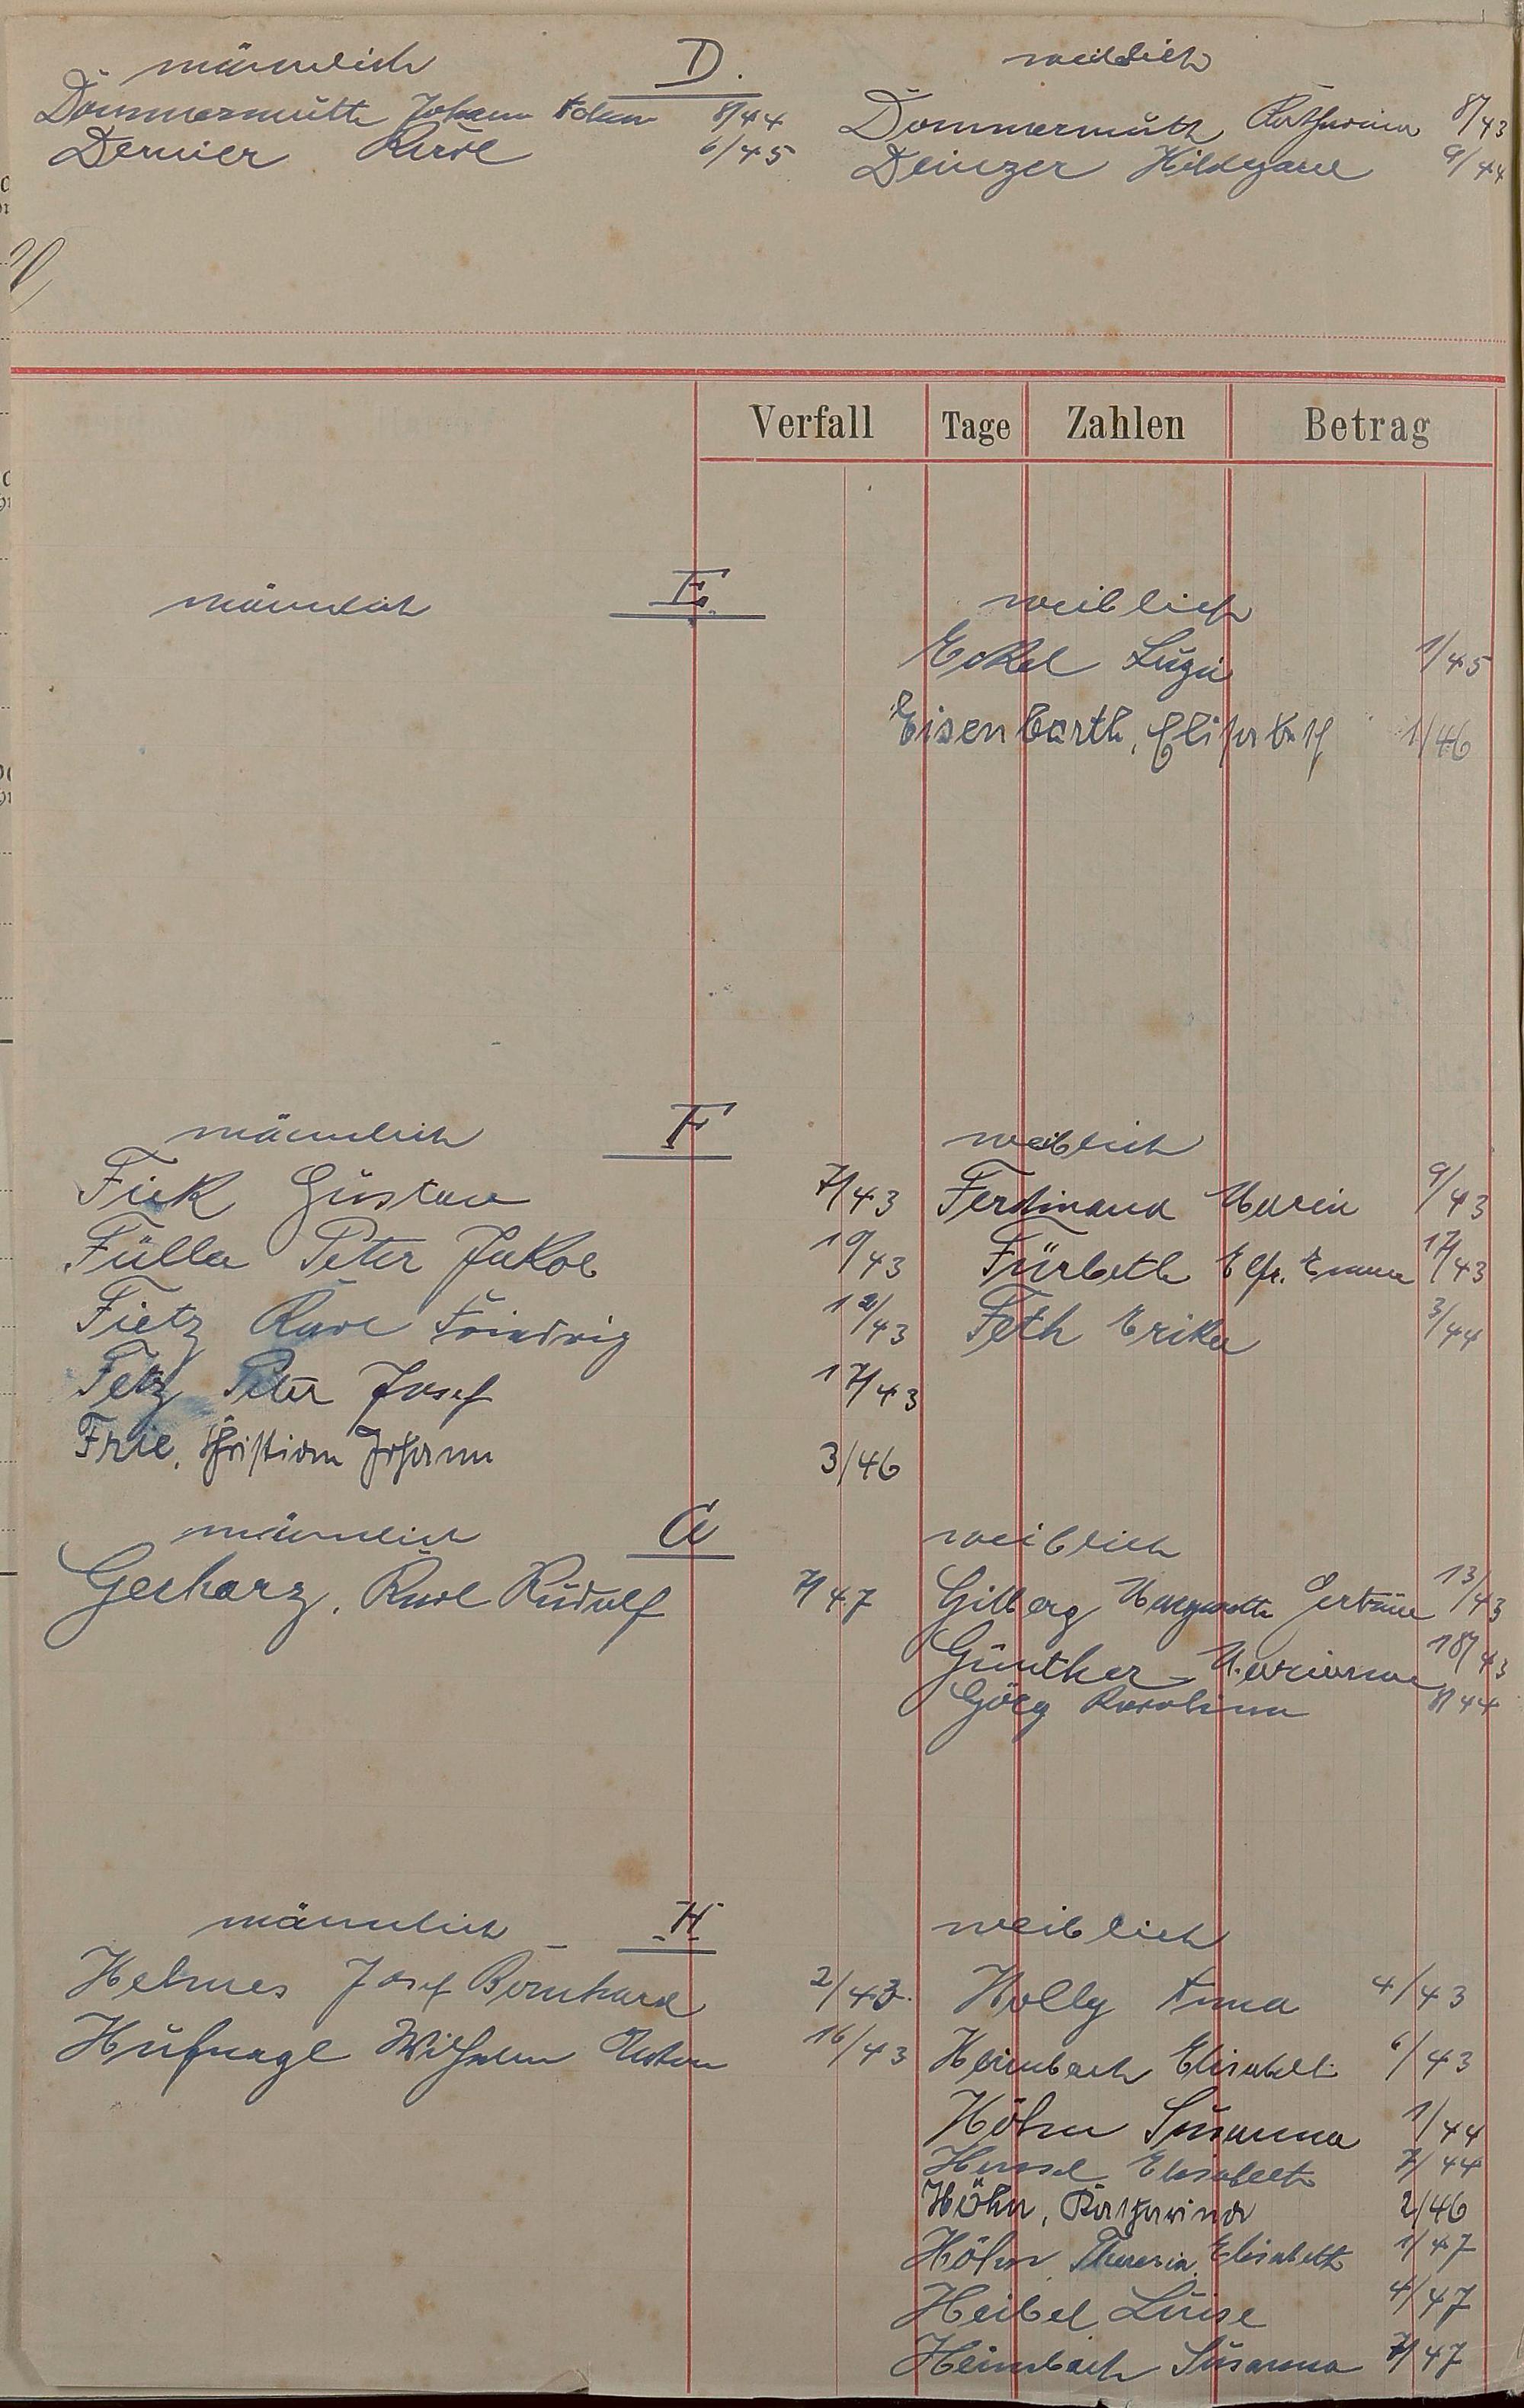 männlich D. weiblich
Dommermuth Johann Adam 8/44 Dommermuth Katharina 8/43
Dernier Karl 6/45 Deinzer Hildegard 9/44
Verfall Tage Zahlen Betrag
männlich E. weiblich
Eckel Luzie 1/45
Eisenbarth, Elisabeth 1/46
männlich F weiblich
Fick Gustav 7/43 Ferdinand Maria 9/43
Fülla Peter Jakob 10/43 Fürbeth Elfr. Emma 17/43
Fietz Karl Friedrich 12/43 Feth Erika 3/44
Fetz Peter Josef 17/43
Frie, Christian Johann 3/46
männlich G weiblich
Gerharz, Karl Rudolf 7/47 Gilberg Margarethe Gertrud 13/43
Günther Marianne 18/43
Görg Karolina 8/44
männlich H weiblich
Helmes Josef Bernhard 2/43. Holly Anna 4/43
Hufnagl Wilhelm Anton 16/43 Heimbach Elisabeth 6/43
Höhn Susanna 1/44
Elisabeth 7/44
Höhn, Katharina 2/46
Höhn, Theresia Elisabeth 1/47
Heibel Luise 4/47
Heimbach Susanna 7/47